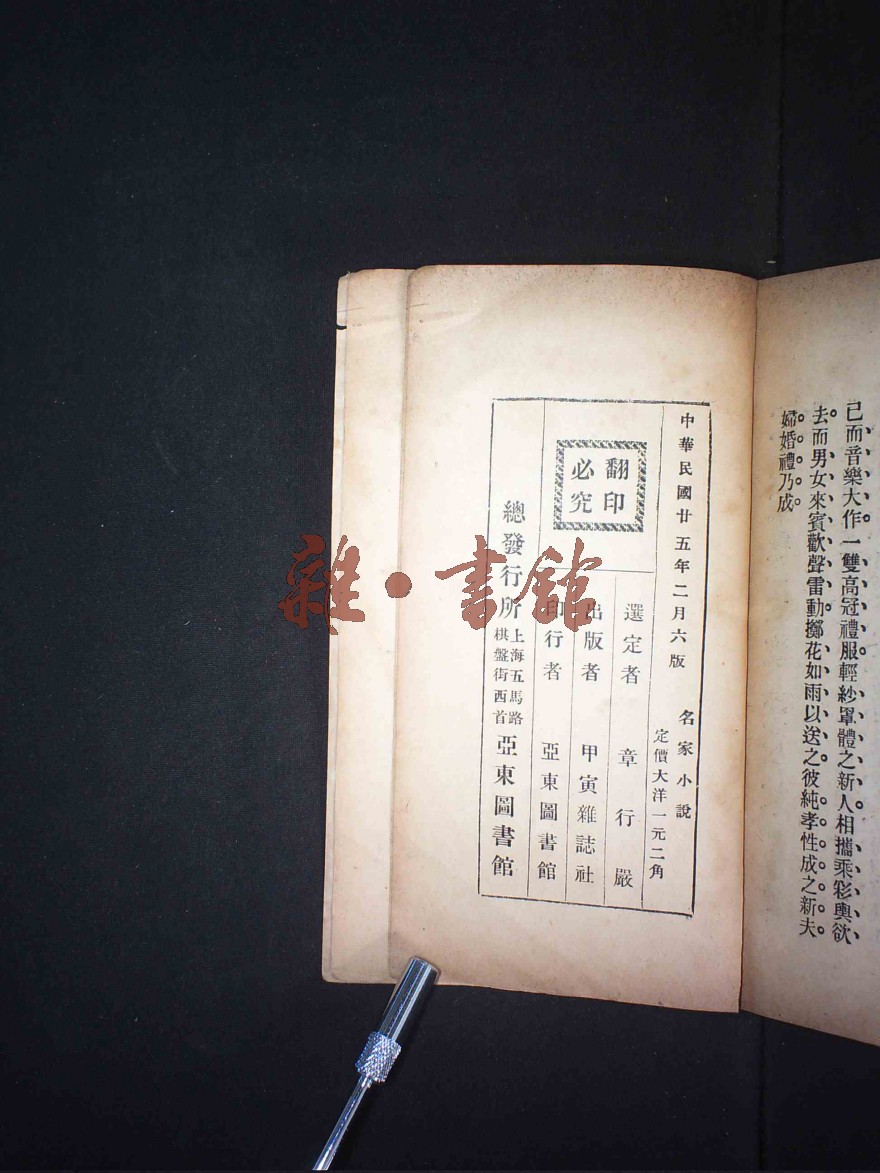 已而音樂大作。一雙高冠禮服輕紗罩體之新人。相攜乘彩輿欲
去。而男女來賓歡聲雷動擲花如雨以送之。彼純孝性成之新夫
婦婚禮乃成。
中華民國廿五年二月六版
名家小說
定價大洋一元二角
翻印
必究
選定者 章行嚴
出版者 甲寅雜誌社
印行者 亞東圖書館
總發行所 上海五馬路
棋盤街西首 亞東圖書館
雜·書館